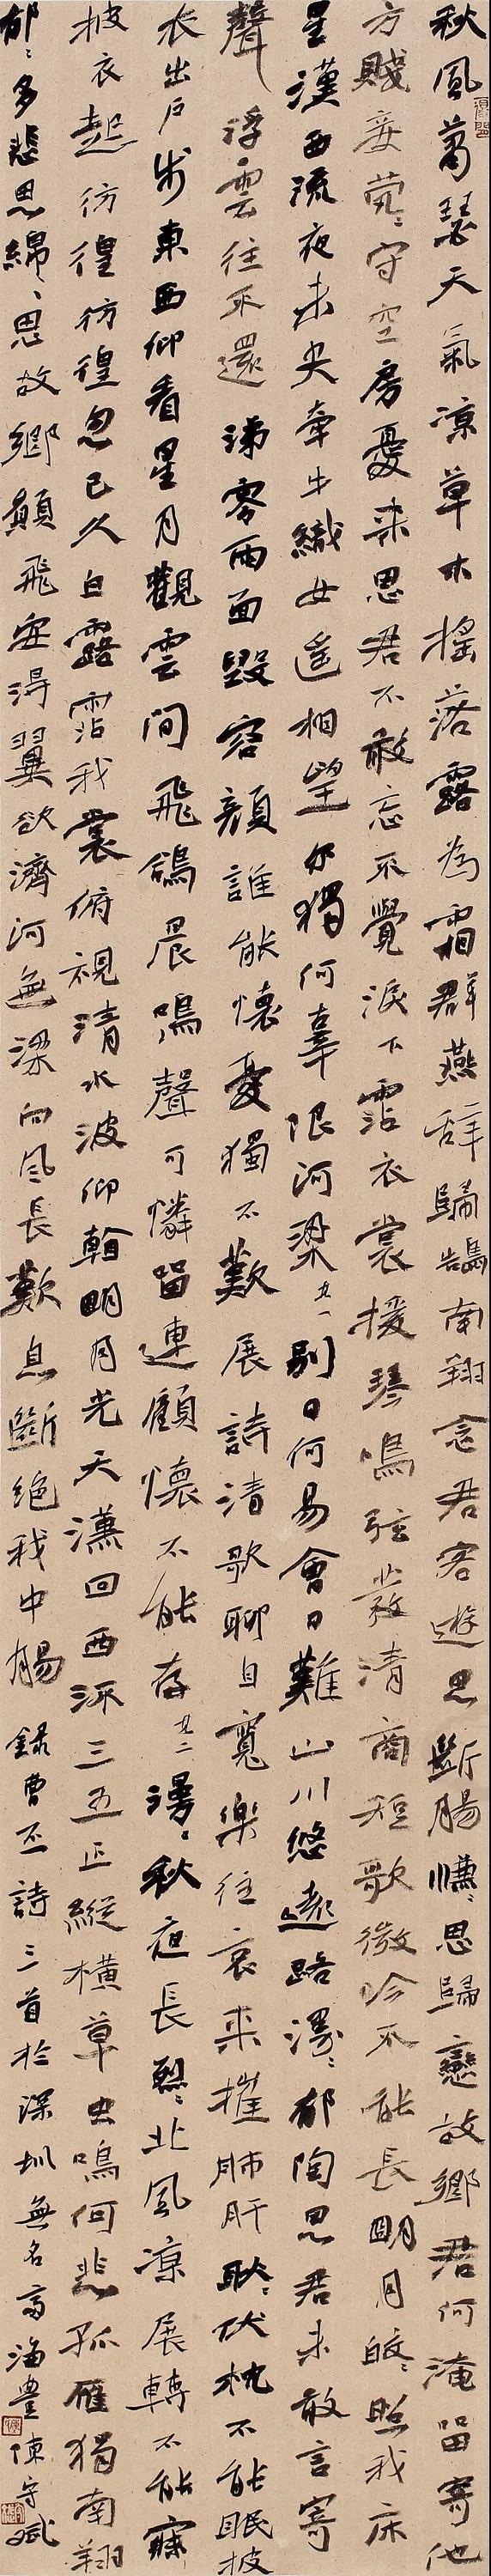 秋風蕭瑟天氣涼草木搖落露為霜群燕辞歸鵠南翔念君客遊思斷腸慊〻思歸戀故鄉君何淹留寄他
方賤妾煢〻守空房憂来思君不敢忘不覺淚下霑衣裳援琴鳴弦發清商短歌微吟不能長明月皎〻照我床
星漢西流夜未央牽牛織女遥相望尔獨何辜限河梁其一別日何易會日難山川悠遠路漫〻郁陶思君未敢言寄
聲浮雲往不還涕零雨面毀容顔誰能懷憂獨不歎展詩清歌聊自寬樂往哀来摧肺肝耿〻伏枕不能眠披
衣出户步東西仰看星月觀雲間飛鶬晨鳴聲可憐留連顧懷不能存其二漫〻秋夜長烈〻北風涼展轉不能寐
披衣起彷徨彷徨忽已久白露霑我裳俯視清水波仰看明月光天漢回西流三五正縱横草虫鳴何悲孤雁獨南翔
郁〻多悲思綿〻思故鄉願飛安得翼欲濟河無梁向風長歎息斷絶我中腸 録曹丕詩三首於深圳無名齋海豐陳守斌